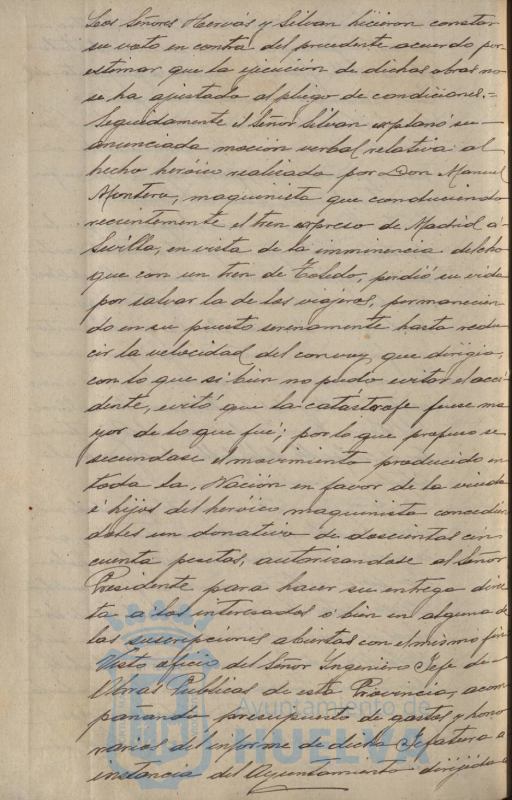 Los Señores Hervás y Silvan hicieron constar
su voto en contra del precedente acuerdo por
estimar que la ejecución de dichas obras no
se ha ajustado al pliego de condiciones.=
Seguidamente el Señor Silvan explanó su
anunciada moción verbal relativa al
hecho heróico realizado por Don Manuel
Montero, maquinista que conduciendo
recientemente el tren expreso de Madrid á
Sevilla, en vista de la imminencia del cho
que con un tren de Toledo, perdió su vida
por salvar la de los viajeros, permanecien
do en su puesto serenamente hasta redu
cir la velocidad del convoy que dirigia,
con lo que si bien no pudo evitar el acci
dente, evitó que la catástrofe fuese ma
yor de lo que fué; por lo que propuso se
secundase el movimiento producido en
toda la Nacion en favor de la viuda
é hijos del heróico maquinista concedién
doles un donativo de doscientas cin
cuenta pesetas, autorizandose al Señor
Presidente para hacer su entrega direc
ta a los interesados ó bien en alguna de
las suscripciones abiertas con el mismo fin
Visto oficio del Señor Ingeniero Jefe de
Obras Publicas de esta Provincia, acom
pañando presupuesto de gastos y hono
rarios del informe de dicha Jefatura a
instancia del Ayuntamiento dirijida a
Ayuntamiento de
HUELVA